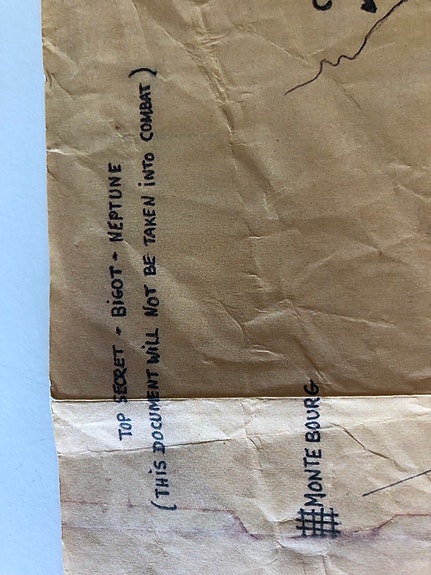 TOP SECRET - BIGOT - NEPTUNE
(THIS DOCUMENT WILL NOT BE TAKEN iNTO COMBAT)
MONTE BOURG